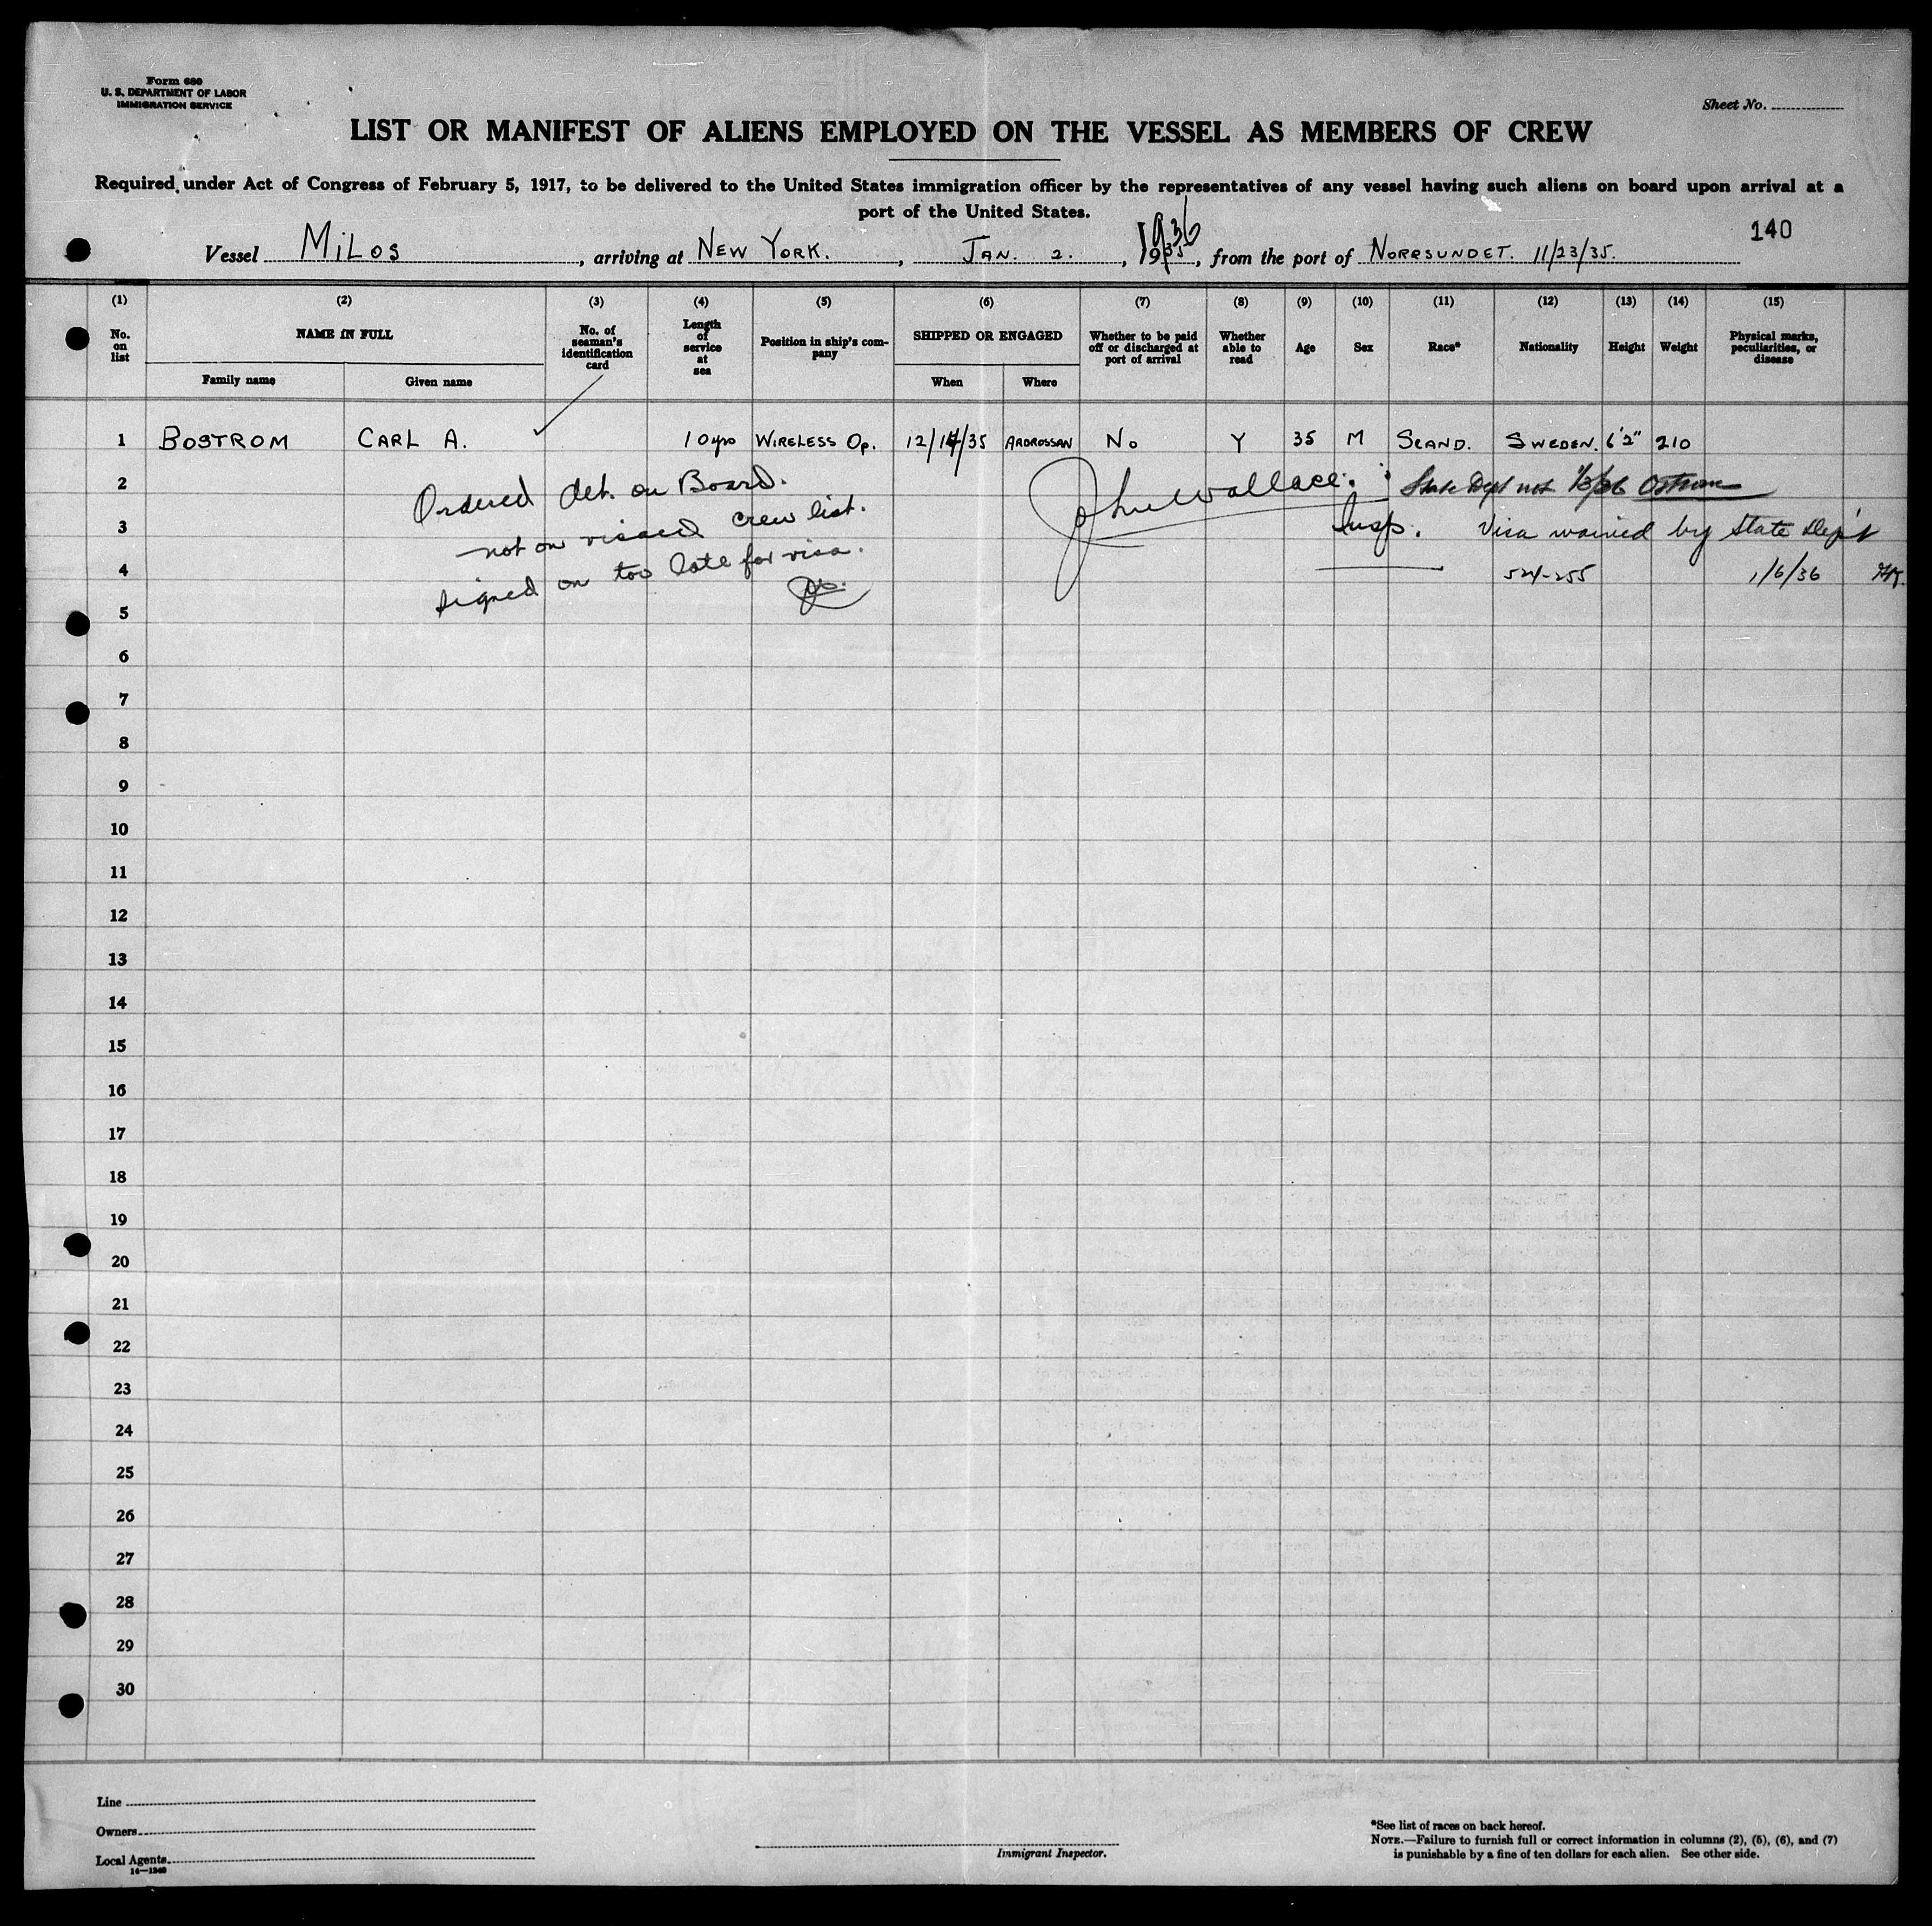 Form 680
U. S. DEPARTMENT OF LABOR
IMMIGRATION SERVICE
Sheet No.
LIST OR MANIFEST OF ALIENS EMPLOYED ON THE VESSEL AS MEMBERS OF CREW
Required under Act of Congress of February 5, 1917, to be delivered to the United States immigration officer by the representatives of any vessel having such aliens on board upon arrival at a
port of the United States.
140
Vessel MILOS, arriving at NEW YORK., JAN. 2., 1936, from the port of NORRSUNDET. 11/23/35.
(1) (2) (3) (4) (5) (6) (7) (8) (9) (10) (11) (12) (13) (14) (15)
No. on list NAME IN FULL No. of seaman's identification card Length of service at sea Position in ship's company SHIPPED OR ENGAGED Whether to be paid off or discharged at port of arrival Whether able to read Age Sex Race* Nationality Height Weight Physical marks, peculiarities, or disease
Family name Given name When Where
1 BOSTROM CARL A. 10 yrs WIRELESS Op. 12/14/35 ARDROSSAN No Y 35 M SCAND. SWEDEN. 6'2" 210
2 Ordered det. on Board. John Wallace. State Dept not 1/3/36
3 not on visaed crew list. Insp. Visa waived by State Dep't
4 signed on too late for visa. 1/6/36
5
6
7
8
9
10
11
12
13
14
15
16
17
18
19
20
21
22
23
24
25
26
27
28
29
30
Line
Owners
Local Agents
14—1240
Immigrant Inspector.
*See list of races on back hereof.
NOTE.—Failure to furnish full or correct information in columns (2), (5), (6), and (7)
is punishable by a fine of ten dollars for each alien. See other side.